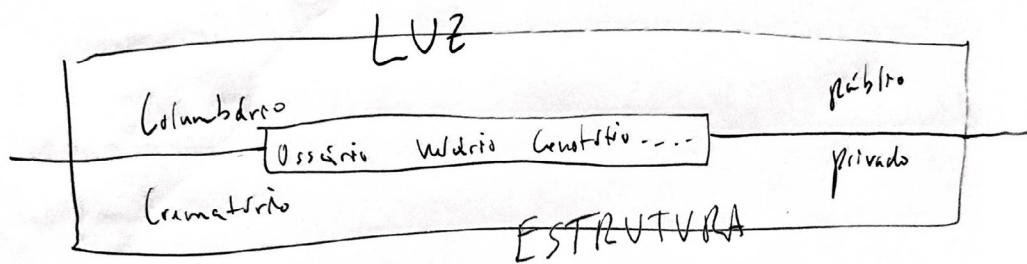 LUZ
Columbário
público
Ossário Velório ....
privado
Crematório
ESTRUTURA